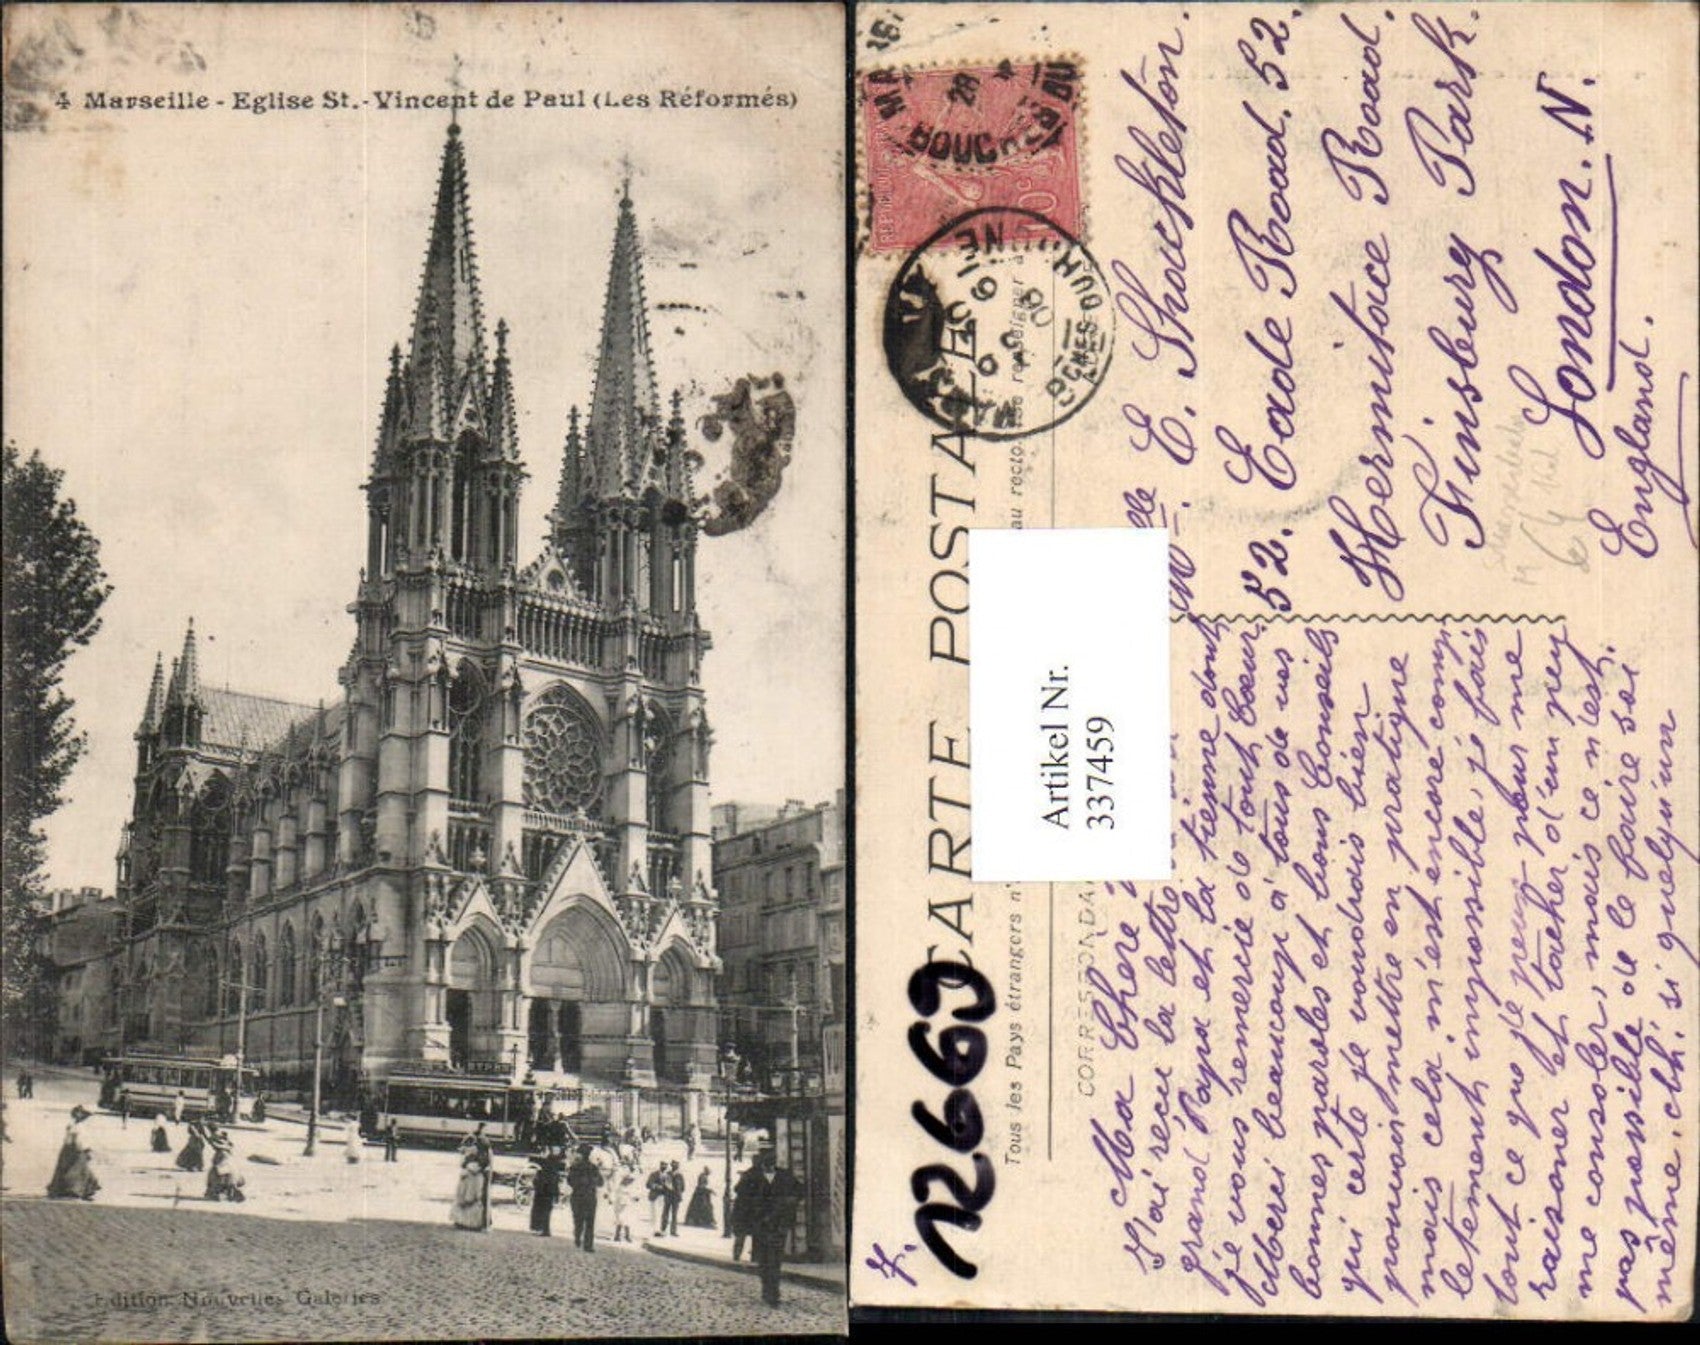 4 Marseille - Eglise St.-Vincent de Paul (Les Réformés)
Edition Nouvelles Galeries
CARTE POSTA
Tous les Pays étrangers n'
au recto
se renseigner à
CORRESPONDA
Artikel Nr.
337459
12669
7.
10c
MARSEILLE
BCHES DU RHONE
Mlle E. Shackleton.
52. Eade Road. 52.
Hermitage Road.
Finsbury Park.
London. N.
England.
Ma Chere
J'ai reçu la lettre
grand Papa et la tienne dont
je vous remercie de tout Cœur.
Merci beaucoup à tous de vos
bonnes paroles et bons Conseils
qui certe je voudrais bien
pouvoir mettre en pratique
mais cela m'est encore comp
letement impossible, je fais
tout ce que je peux pour me
raisoner et tacher d'en peu
me consoler, mais ce n'est
pas possible de le faire soi
même, ah! si quelqu'un